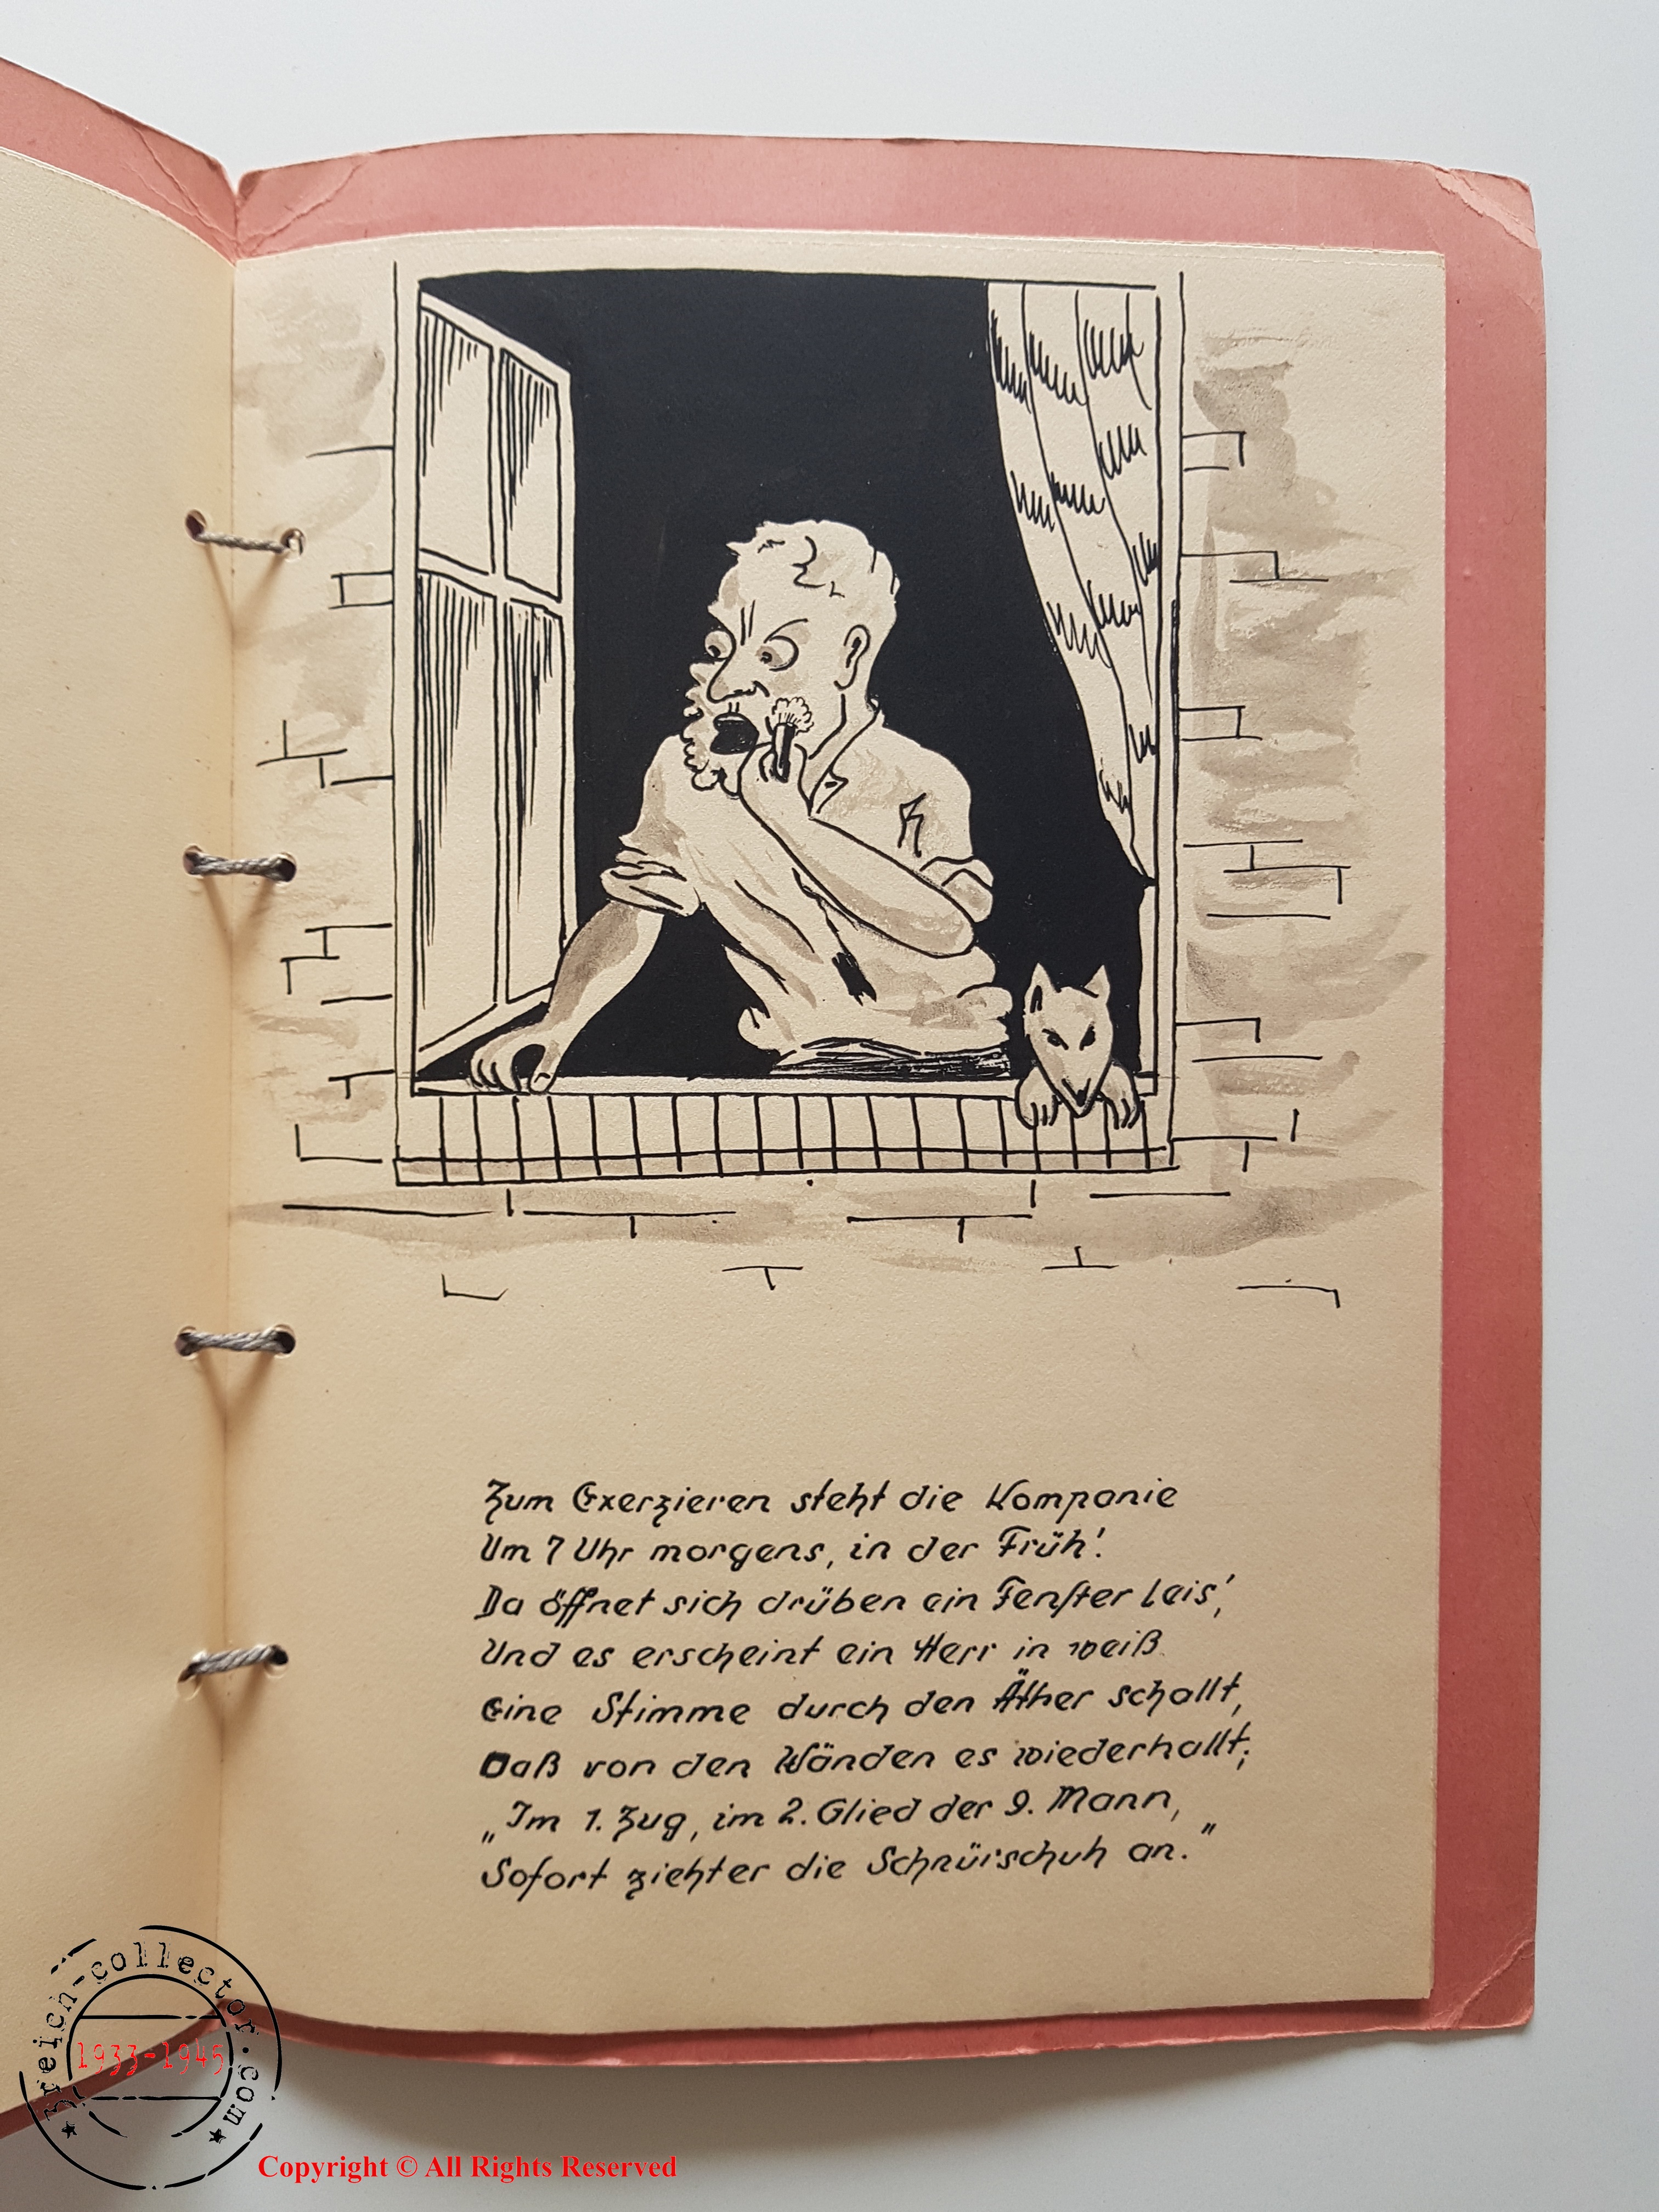 Zum Exerzieren steht die Kompanie
Um 7 Uhr morgens, in der Früh'.
Da öffnet sich drüben ein Fenster leis',
Und es erscheint ein Herr in weiß.
Eine Stimme durch den Äther schallt,
Daß von den Wänden es wiederhallt;
„Im 1. Zug, im 2. Glied der 9. Mann,
Sofort ziehter die Schnürschuh an."
3reich-collector.com
1933-1945
Copyright © All Rights Reserved